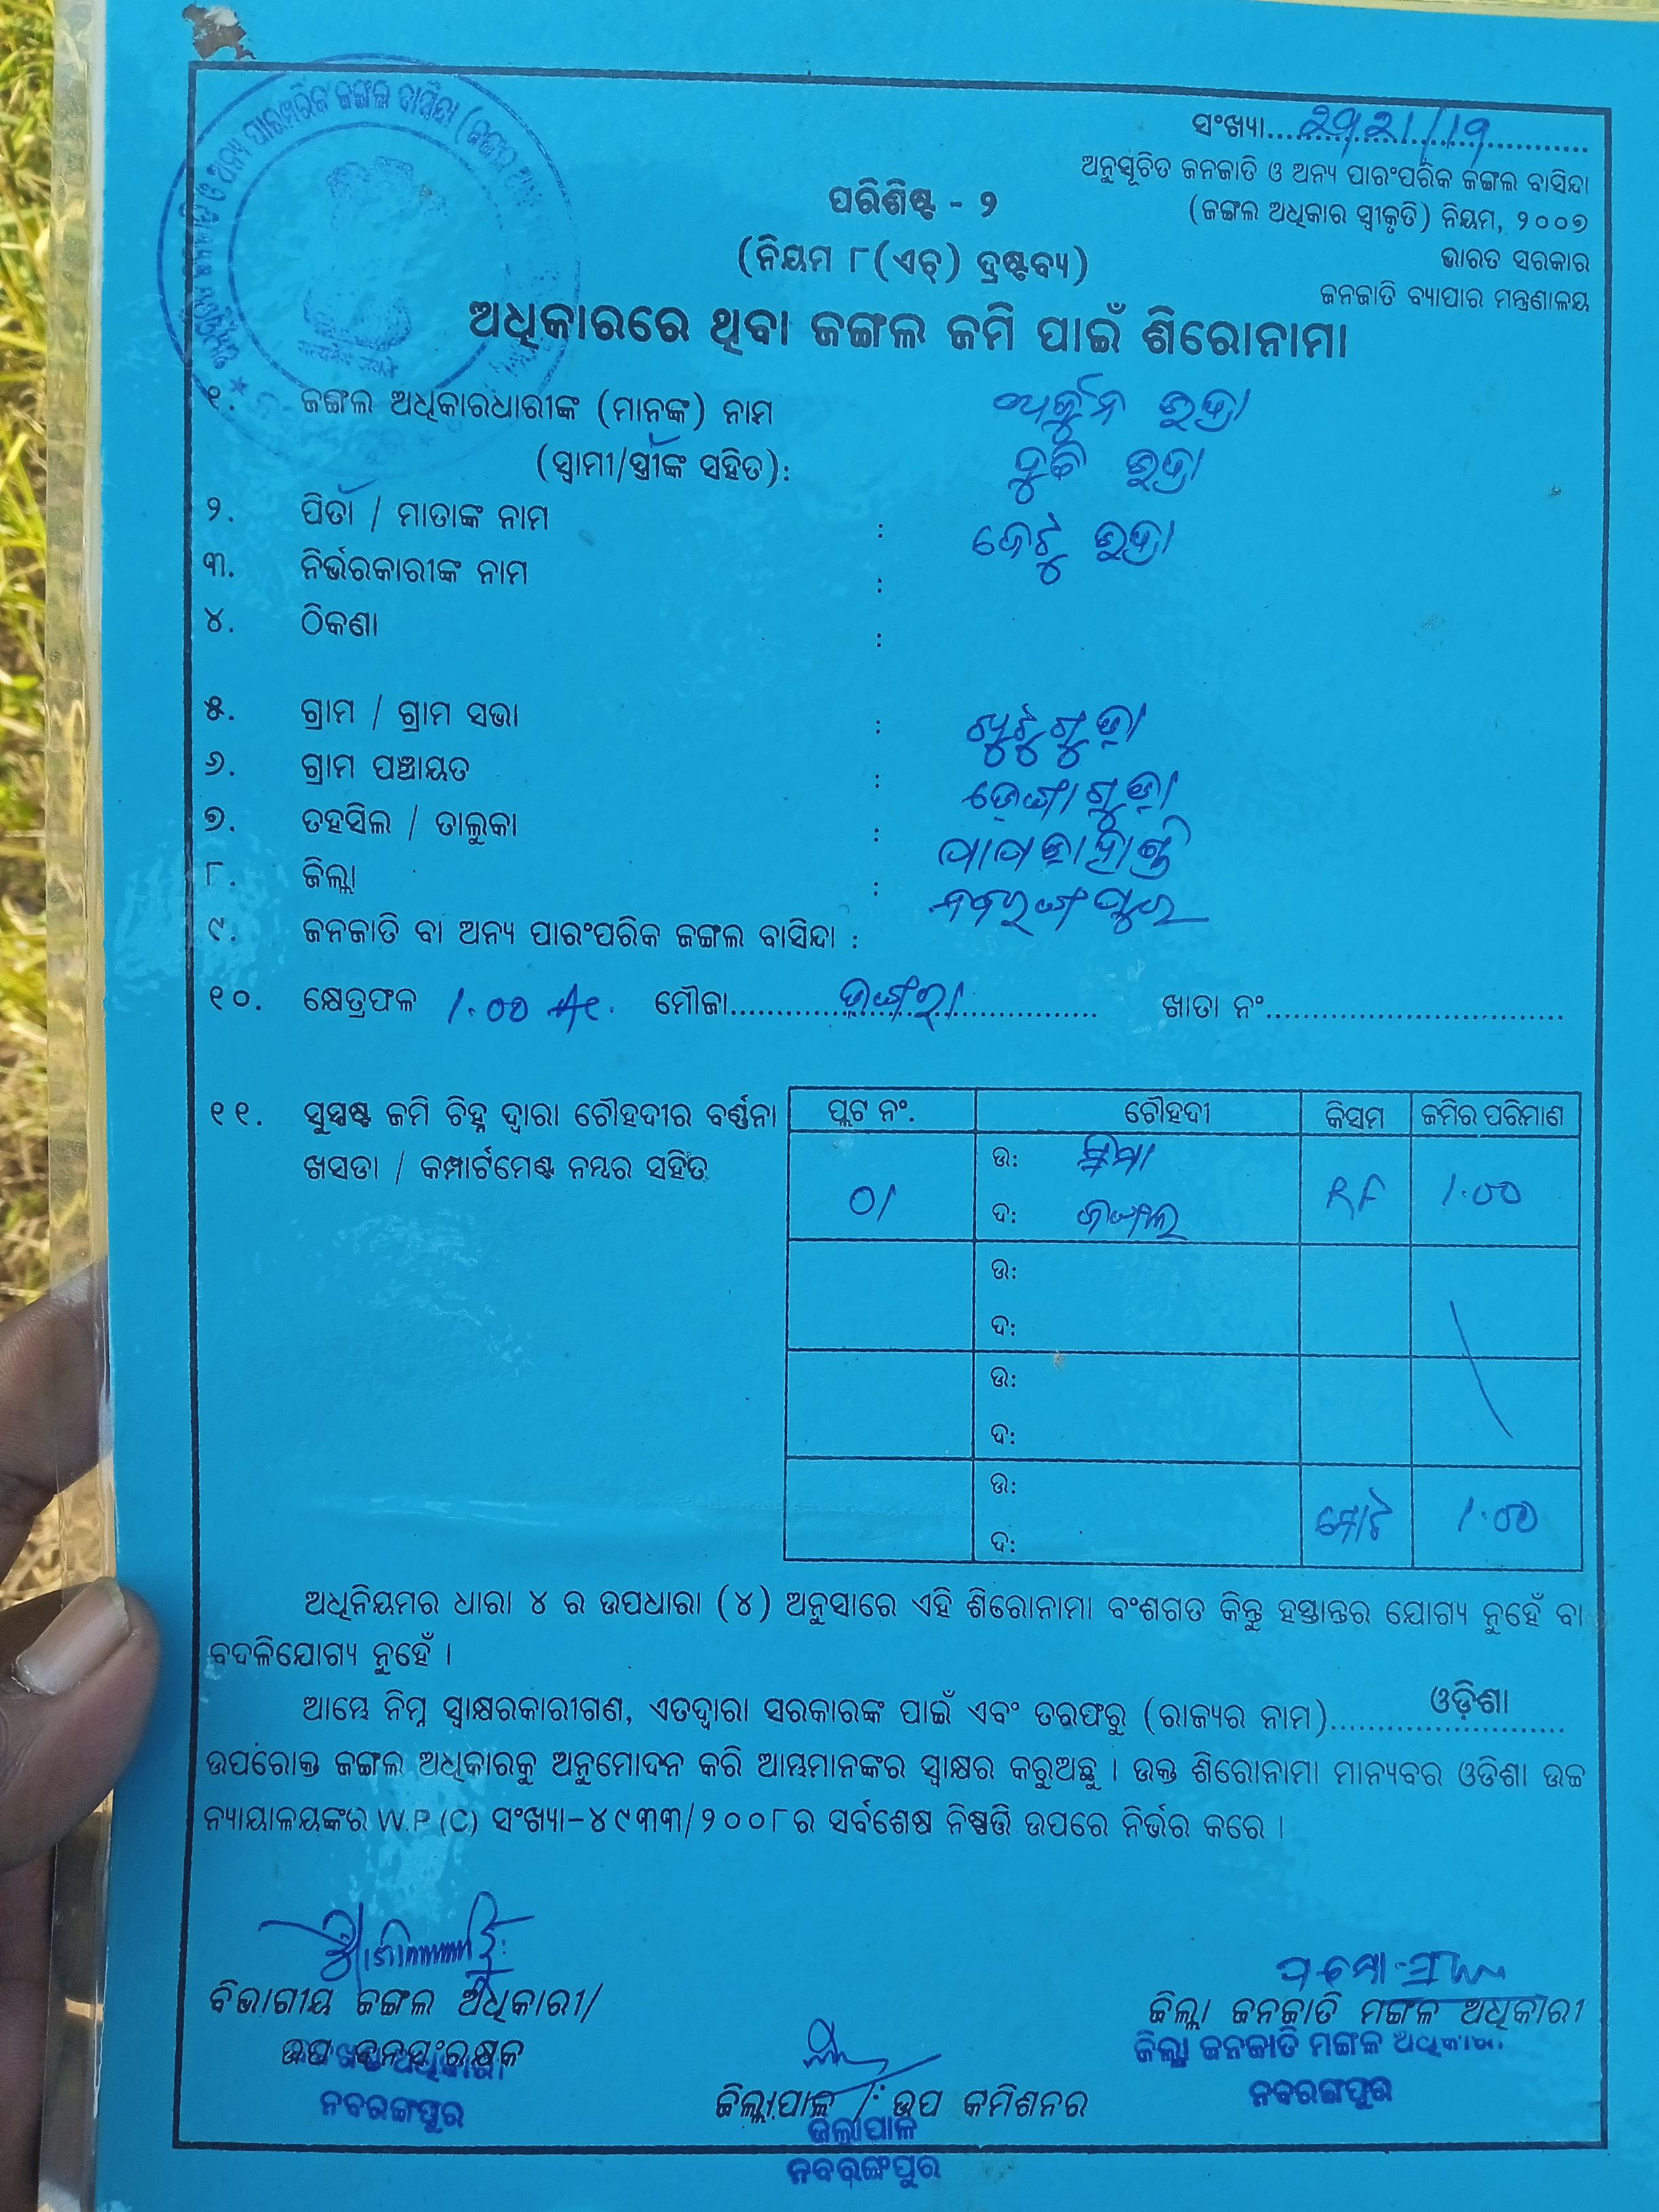 ଅନୁସୂଚିତ ଜନଜାତି ଓ ଅନ୍ୟ ପାରମ୍ପରିକ ଜଙ୍ଗଲ ବାସିନ୍ଦା
ସଂଖ୍ୟା
ଅନୁସୂଚିତ ଜନଜାତି ଓ ଅନ୍ୟ ପାରଂପରିକ ଜଙ୍ଗଲ ବାସିନ୍ଦା
(ଜଙ୍ଗଲ ଅଧିକାର ସ୍ୱୀକୃତି) ନିୟମ, ୨୦୦୭
ଭାରତ ସରକାର
ଜନଜାତି ବ୍ୟାପାର ମନ୍ତ୍ରଣାଳୟ
ପରିଶିଷ୍ଟ - ୨
(ନିୟମ ୮(ଏଚ୍) ଦ୍ରଷ୍ଟବ୍ୟ)
ଅଧିକାରରେ ଥିବା ଜଙ୍ଗଲ ଜମି ପାଇଁ ଶିରୋନାମା
୧. ଜଙ୍ଗଲ ଅଧିକାରଧାରୀଙ୍କ (ମାନଙ୍କ) ନାମ ଅର୍ଜୁନ ଭତ୍ରା
(ସ୍ୱାମୀ/ସ୍ତ୍ରୀଙ୍କ ସହିତ): ଭତ୍ରା
୨. ପିତା / ମାତାଙ୍କ ନାମ : ଭତ୍ରା
୩. ନିର୍ଭରକାରୀଙ୍କ ନାମ :
୪. ଠିକଣା :
୫. ଗ୍ରାମ / ଗ୍ରାମ ସଭା : ଖୁଟୁଗୁଡ଼ା
୬. ଗ୍ରାମ ପଞ୍ଚାୟତ :
୭. ତହସିଲ / ତାଲୁକା : ପାପଡାହାଣ୍ଡି
୮. ଜିଲ୍ଲା : ନବରଙ୍ଗପୁର
୯. ଜନଜାତି ବା ଅନ୍ୟ ପାରଂପରିକ ଜଙ୍ଗଲ ବାସିନ୍ଦା :
୧୦. କ୍ଷେତ୍ରଫଳ 1.00 Ac. ମୌଜା ଖାତା ନଂ
୧୧. ସୁସ୍ପଷ୍ଟ ଜମି ଚିହ୍ନ ଦ୍ୱାରା ଚୌହଦୀର ବର୍ଣ୍ଣନା
ଖସଡା / କମ୍ପାର୍ଟମେଣ୍ଟ ନମ୍ବର ସହିତ
ପ୍ଲଟ ନଂ. ଚୌହଦୀ କିସମ ଜମିର ପରିମାଣ
ଉ:
01 RF 1.00
ଦ: ଜଙ୍ଗଲ
ଉ:
ଦ:
ଉ:
ଦ:
ଉ:
ମୋଟ 1.00
ଦ:
ଅଧିନିୟମର ଧାରା ୪ ର ଉପଧାରା (୪) ଅନୁସାରେ ଏହି ଶିରୋନାମା ବଂଶଗତ କିନ୍ତୁ ହସ୍ତାନ୍ତର ଯୋଗ୍ୟ ନୁହେଁ ବା
ବଦଳିଯୋଗ୍ୟ ନୁହେଁ ।
ଆମ୍ଭେ ନିମ୍ନ ସ୍ୱାକ୍ଷରକାରୀଗଣ, ଏତଦ୍ୱାରା ସରକାରଙ୍କ ପାଇଁ ଏବଂ ତରଫରୁ (ରାଜ୍ୟର ନାମ) ଓଡ଼ିଶା
ଉପରୋକ୍ତ ଜଙ୍ଗଲ ଅଧିକାରକୁ ଅନୁମୋଦନ କରି ଆମ୍ଭମାନଙ୍କର ସ୍ୱାକ୍ଷର କରୁଅଛୁ । ଉକ୍ତ ଶିରୋନାମା ମାନ୍ୟବର ଓଡିଶା ଉଚ୍ଚ
ନ୍ୟାୟାଳୟଙ୍କର W.P (C) ସଂଖ୍ୟା-୪୯୩୩/୨୦୦୮ର ସର୍ବଶେଷ ନିଷ୍ପତ୍ତି ଉପରେ ନିର୍ଭର କରେ ।
ବିଭାଗୀୟ ଜଙ୍ଗଲ ଅଧିକାରୀ/
ଉପ ବନସଂରକ୍ଷକ
ନବରଙ୍ଗପୁର
ଜିଲ୍ଲାପାଳ / ଉପ କମିଶନର
ଜିଲ୍ଲାପାଳ
ନବରଙ୍ଗପୁର
ଜିଲ୍ଲା ଜନଜାତି ମଙ୍ଗଳ ଅଧିକାରୀ
ଜିଲ୍ଲା ଜନଜାତି ମଙ୍ଗଳ ଅଧିକାରୀ
ନବରଙ୍ଗପୁର